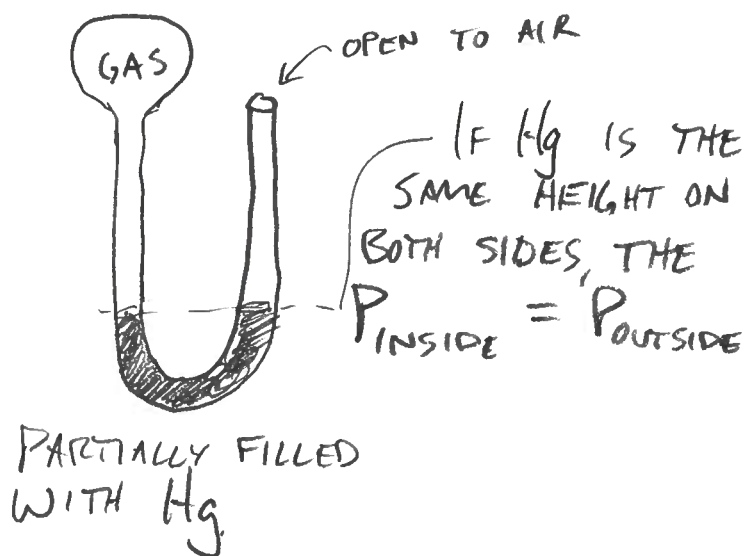 GAS
OPEN TO AIR
IF Hg IS THE
SAME HEIGHT ON
BOTH SIDES, THE
PINSIDE = POUTSIDE
PARTIALLY FILLED
WITH Hg